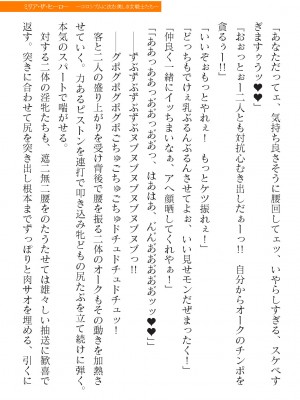 「あなただってェ、気持ち良さそうに腰回してェッ、いやらしすぎる、スケベす
ぎますゥうッ♥♥」
「おおっとぉー二人とも対抗心むき出しだぁーっ!! 自分からオークのチンポを
貪るぅー!!」
「いいぞぉもっとやれぇ! もっとケツ振れぇ!」
「どっちもでけぇ乳ぶるんぶるんさせてよぉ、いい見せモンだぜまったく!」
「仲良く一緒にイッちまいなぁ、アヘ顔晒してくれやぁ!」
「ああっあああっあっあっああっ、はあはあ、んんああああああッッ♥♥」
ずぶずぶずぶずぶヌプヌプヌプヌプヌプっ!!
グポグポグポグポごちゅごちゅごちゅドチュドチュドチュッ!
客と二人の盛り上がりを受け背後で腰を振る二体のオークもその動きを加熱さ
せていく。力あるピストンを連打で叩き込み牝どもの尻たぶを立て続けに弾く。
本気のスパートで喘がせる。
対する二体の淫牝たちも、遮二無二腰をのたうたせては雄々しい抽送に歓喜で
応える。突きに合わせて尻を突き出し根本までずっぽりと肉サオを埋める、引くに